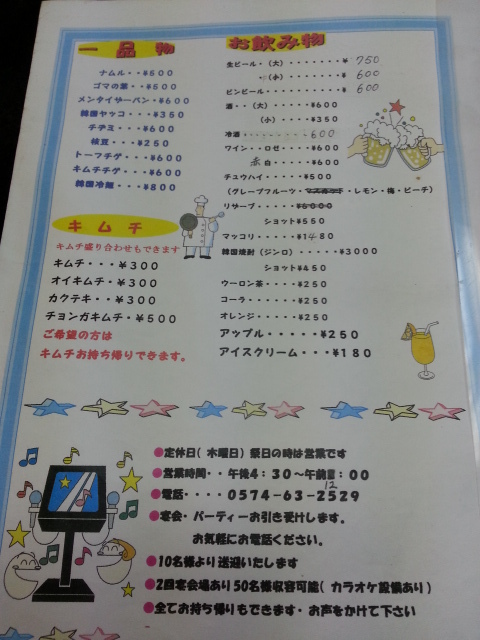 一品物
ナムル・・¥500
ゴマの葉・・¥500
メンタイサーパン・・¥600
韓国ヤッコ・・・¥350
チヂミ・・・¥600
枝豆・・・¥250
トーフチゲ・・・¥600
キムチチゲ・・・¥600
韓国冷麺・・・¥800
キムチ
キムチ盛り合わせもできます
キムチ・・・¥300
オイキムチ・・¥300
カクテキ・・・¥300
チョンガキムチ・¥500
ご希望の方は
キムチお持ち帰りできます。
お飲み物
生ビール・(大)・・・・・・・¥ 750
〃(小)・・・・・・・¥ 600
ビンビール・・・・・・・・¥ 600
酒・・(大)・・・・¥600
(小)・・・・¥350
冷酒・・・・・・・・600
ワイン・・ロゼ・・・・¥600
白・・・・¥600
チュウハイ・・・・・¥500
(グレープフルーツ・レモン・梅・ピーチ)
リザーブ・・・・・¥6000
ショット¥550
マッコリ・・・・・¥1480
韓国焼酎(ジンロ)・・・・・¥3000
ショット¥450
ウーロン茶・・・・¥250
コーラ・・・・・・¥250
オレンジ・・・・・¥250
アップル・・・・・¥250
アイスクリーム・・・¥180
●定休日(木曜日)祭日の時は営業です
●営業時間・・午後4:30〜午前:00
12
●電話・・・・0574-63-2529
●宴会・パーティーお引き受けします。
お気軽にお電話ください。
●10名様より送迎いたします
●2回宴会場あり50名様収容可能(カラオケ設備あり)
●全てお持ち帰りもできます・お声をかけて下さい